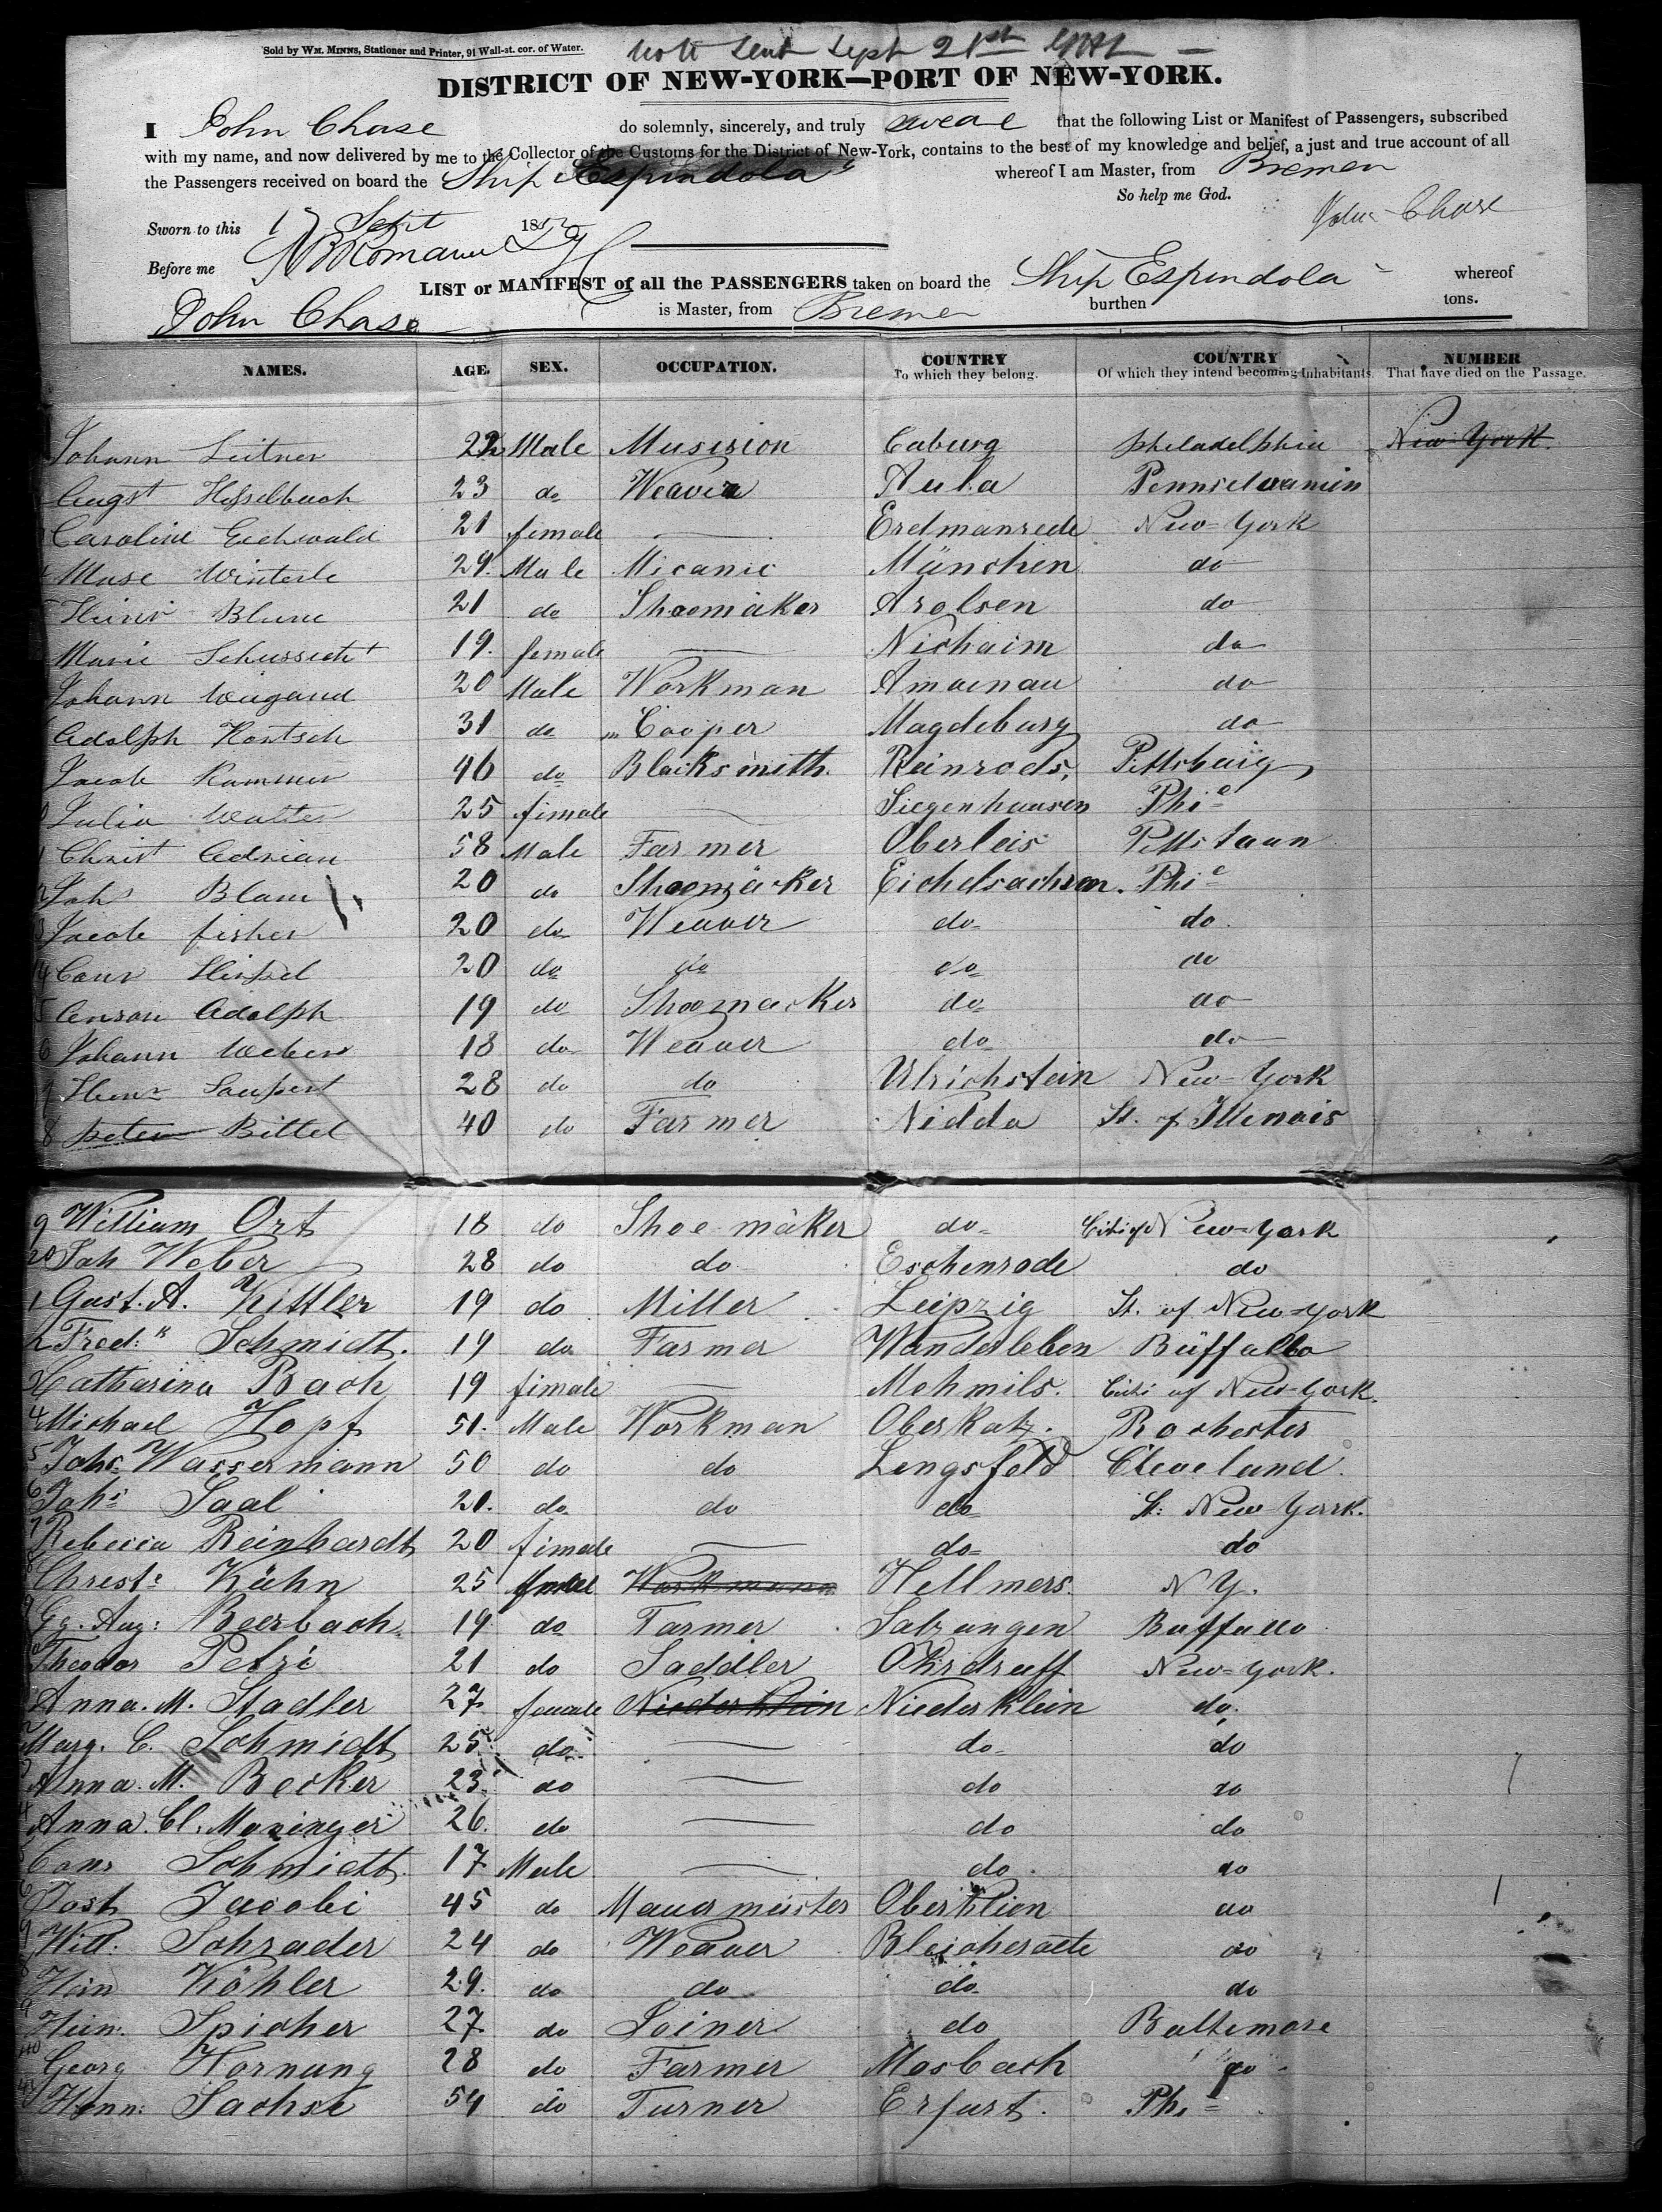 Sold by WM. MINNS, Stationer and Printer, 91 Wall-st. cor. of Water.
Sept 21st
DISTRICT OF NEW-YORK—PORT OF NEW-YORK.
I John Chase do solemnly, sincerely, and truly swear that the following List or Manifest of Passengers, subscribed
with my name, and now delivered by me to the Collector of the Customs for the District of New-York, contains to the best of my knowledge and belief, a just and true account of all
the Passengers received on board the Ship Espindola whereof I am Master, from Bremen
So help me God.
Sworn to this 17 Sept 185 John Chase
Before me
LIST or MANIFEST of all the PASSENGERS taken on board the Ship Espindola whereof
John Chase is Master, from Bremen burthen tons.
NAMES. AGE. SEX. OCCUPATION. COUNTRY To which they belong. COUNTRY Of which they intend becoming Inhabitants. NUMBER That have died on the Passage.
Johann Leitner 22 Male Musision Caburg philadelphia New York
2 Augst Hesselbach 23 do Weaver Aula
3 Caroline Eichwald 21 female — Erdmanrede New-York
4 Winterle 29. Male Micanic München do
5 Heinr Blume 21 do Shoemäker Arolsen do
Marie Schussecht 19. female — Nichaim do
Johann Weigand 20 Male Workman Amaenau do
Adolph Kontsch 31 do Cooper Magdeburg do
Jacob Kammer 46 do Blacksmith. Reinrods, Pittsburg
Julia Walter 25 fimale — Siegenhausen Phi e
1 Christ Adrian 58 Male Farmer Oberleis Pittstaun
2 Joh Blum 20 do Shoemäcker Eichelsachsen. Phi e
3 Jacob fisher 20 do Weaver do do.
4 Conr 20 do do do do
5 Adolph 19 do Shoomacker do do
6 Johann Weber 18 do Weaver do do
7 Henr Saupert 28 do do Ulrichstein New-York
8 peter Bittel 40 do Farmer Nidda St. of Illenois
9 William Ort 18 do Shoe-mäker do City of New-York
20 Joh Weber 28 do do Eschenrode do
1 Gust. A. Kittler 19 do Miller Leipzig St. of New-York
2 Fred: Schmidt. 19 do Farmer Wandersleben Büffallo
3 Catharina Bach 19 fimale — Mehmils. Citi of New-York.
4 Michael Hopf 51. Male Workman Oberkatz. Rochester
5 Johs Wassermann 50 do do Lengsfeld Cleveland.
6 Johs Saal 21. do do do St: New York.
7 Rebecca Reinhardt 20 fimale — do do
8 Christe Kühn 25 Workmann Hellmers. N Y.
9 Gg. Aug: Beerbach 19 do Farmer Salzungen Buffallo
Theodor Petri 21 do Saddler Ohrdruff New-York.
Anna. M. Stadler 27 female Niederklein Niederklein do.
2 Marg. C. Schmidt 25 do — do do
3 Anna. M. Becker 23. do — do do
4 Anna. Cl. Moninger 26. do — do do
Conr Schmidt. 17 Male — do. do
6 Jost Jacobi 45 do Mauermeister Oberklien do
Will. Schrader 24 do Weaver Bleicherotte do
Hein Köhler 29. do do do do
9 Hein. Spicher 27 do Loiner do Baltimore
40 Georg Hornung 28 do Farmer Mosbach do
41 Henn: Sachse 54 do Turner Erfurt. Phi e